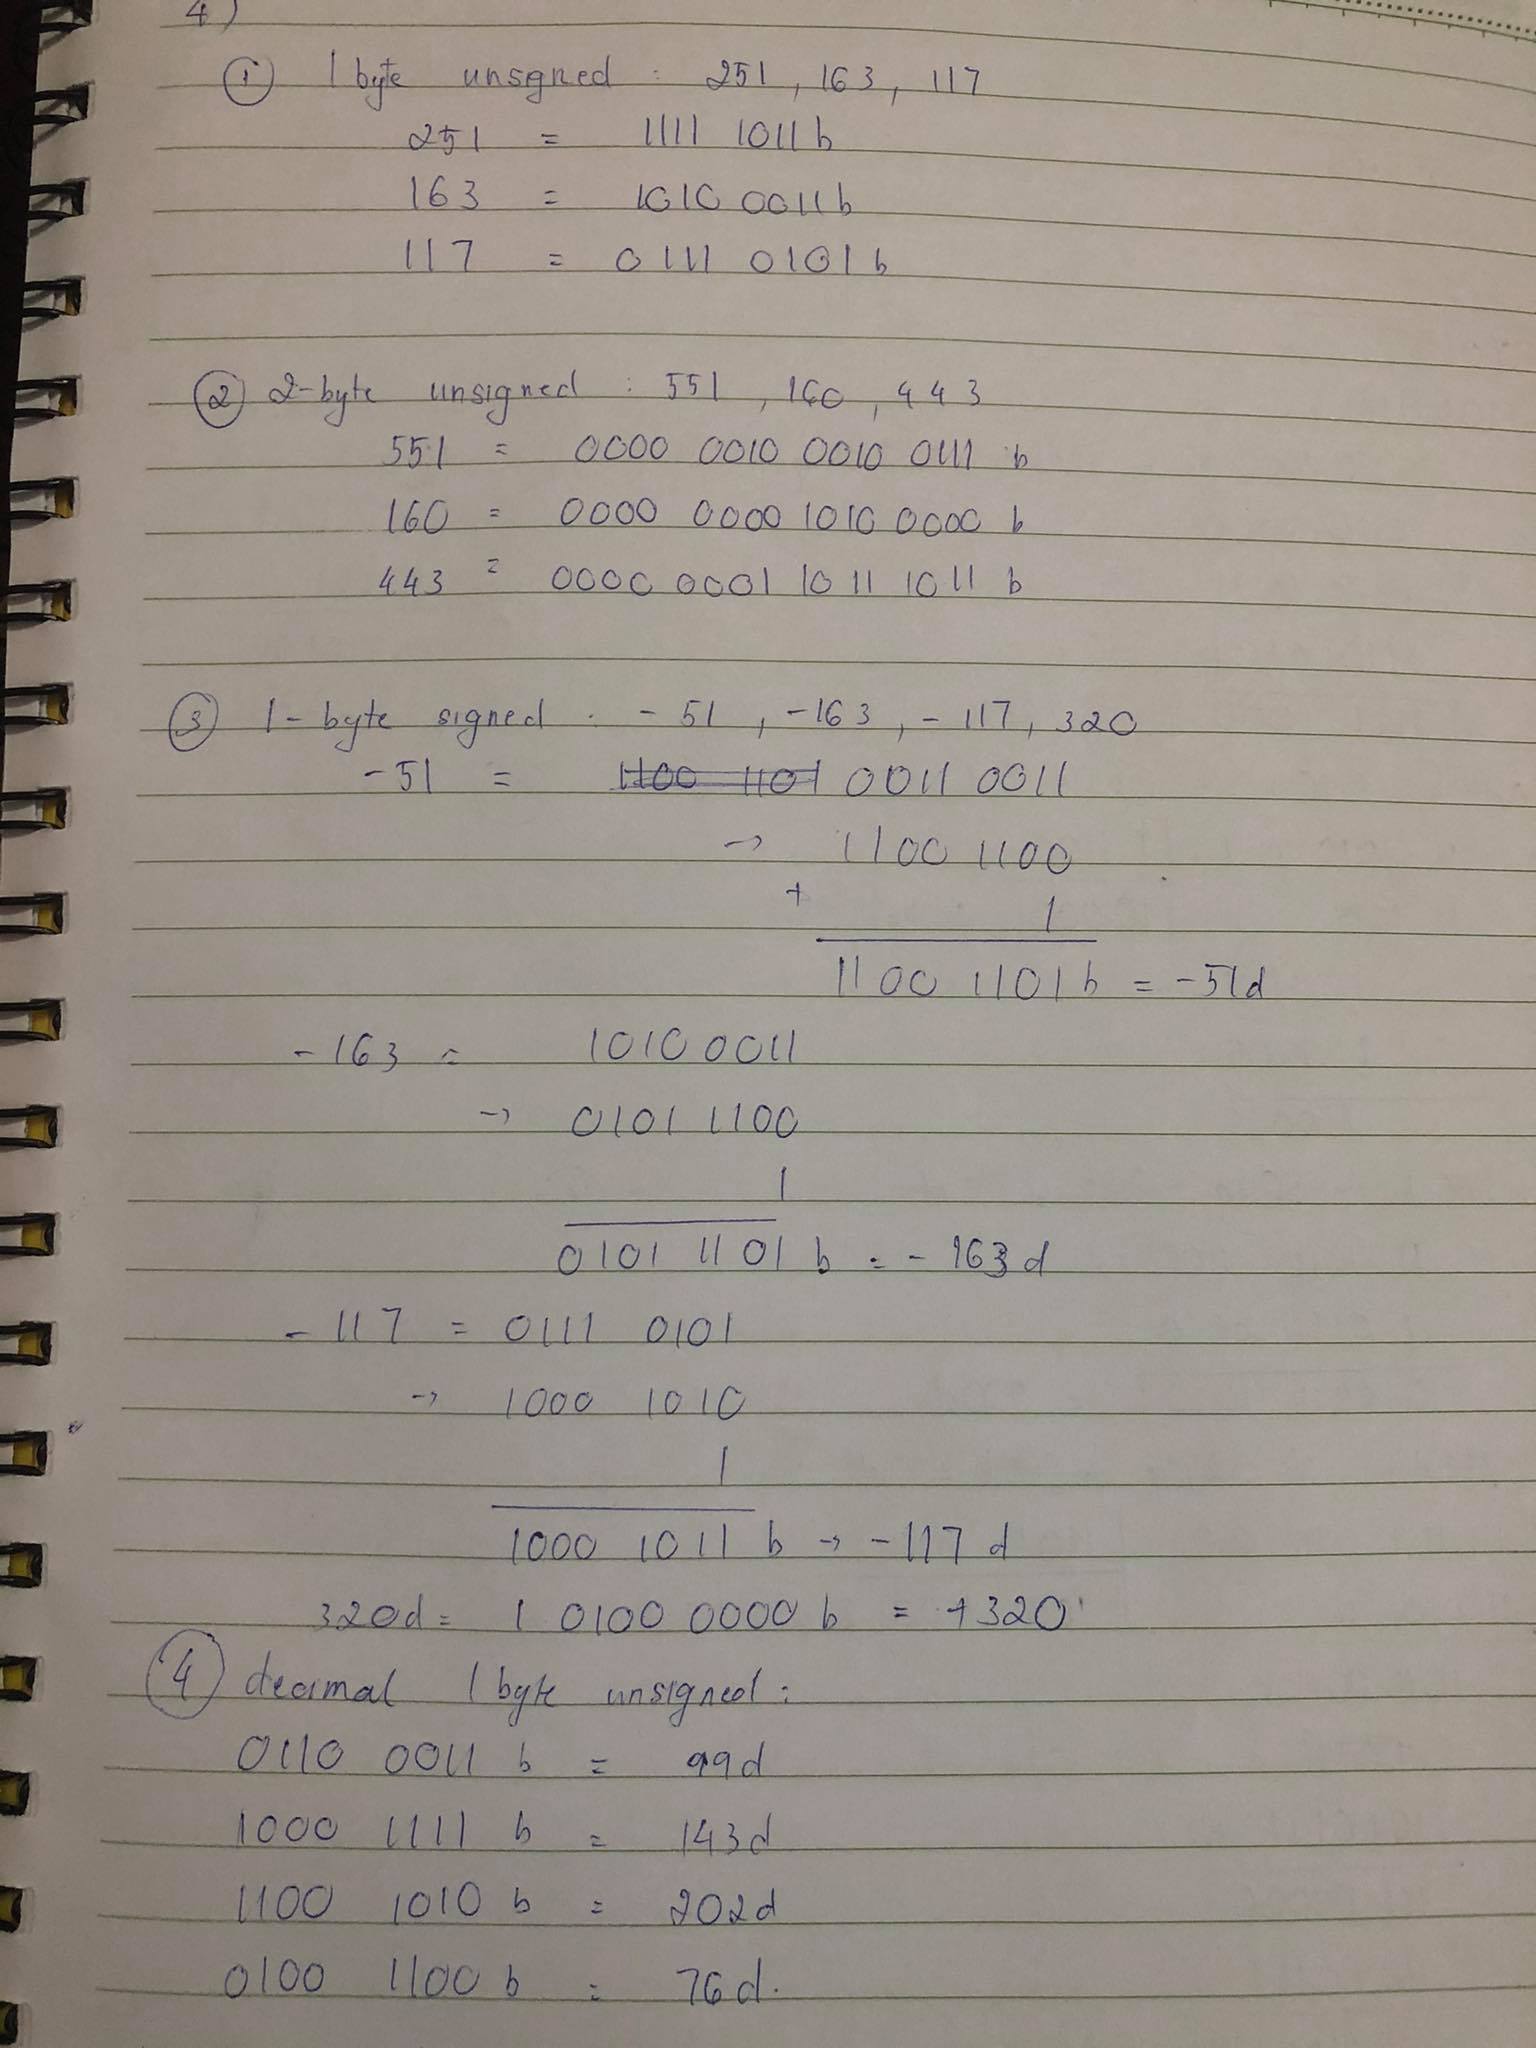 4)
① 1 byte unsgned : 251, 163, 117
251 = 1111 1011 b
163 = 1010 0011 b
117 = 0111 0101 b
② 2-byte unsigned : 551, 160, 443
551 = 0000 0010 0010 0111 b
160 = 0000 0000 1010 0000 b
443 = 0000 0001 1011 1011 b
③ 1-byte signed : -51, -163, -117, 320
-51 = 1100 1101 0011 0011
→ 1100 1100
+ 1
1100 1101 b = -51d
-163 = 1010 0011
→ 0101 1100
1
0101 1101 b = -163 d
-117 = 0111 0101
→ 1000 1010
1
1000 1011 b → -117 d
320d = 1 0100 0000 b = +320
④ decimal 1 byte unsigned :
0110 0011 b = 99d
1000 1111 b = 143d
1100 1010 b = 202d
0100 1100 b = 76d.